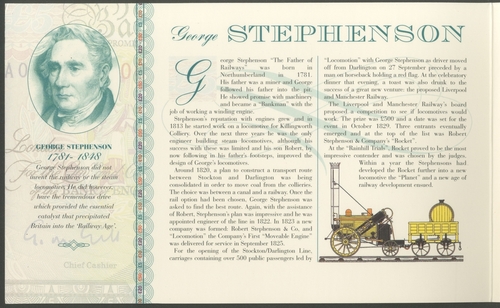 George STEPHENSON
GEORGE STEPHENSON
1781-1848
George Stephenson did not
invent the railway or the steam
locomotive. He did however,
have the tremendous drive
which provided the essential
catalyst that precipitated
Britain into the 'Railway Age'.
Chief Cashier
George Stephenson "The Father of
Railways" was born in
Northumberland in 1781.
His father was a miner and George
followed his father into the pit.
He showed promise with machinery
and became a "Banksman" with the
job of working a winding engine.
Stephenson's reputation with engines grew and in
1813 he started work on a locomotive for Killingworth
Colliery. Over the next three years he was the only
engineer building steam locomotives, although his
success with these was limited and his son Robert, by
now following in his father's footsteps, improved the
design of George's locomotives.
Around 1820, a plan to construct a transport route
between Stockton and Darlington was being
consolidated in order to move coal from the collieries.
The choice was between a canal and a railway. Once the
rail option had been chosen, George Stephenson was
asked to find the best route. Again, with the assistance
of Robert, Stephenson's plan was impressive and he was
appointed engineer of the line in 1822. In 1823 a new
company was formed: Robert Stephenson & Co, and
"Locomotion" the Company's First "Moveable Engine"
was delivered for service in September 1825.
For the opening of the Stockton/Darlington Line,
carriages containing over 500 public passengers led by
"Locomotion" with George Stephenson as driver moved
off from Darlington on 27 September preceded by a
man on horseback holding a red flag. At the celebratory
dinner that evening, a toast was also drunk to the
success of a great new venture: the proposed Liverpool
and Manchester Railway.
The Liverpool and Manchester Railway's board
proposed a competition to see if locomotives would
work. The prize was £500 and a date was set for the
event in October 1829. Three entrants eventually
emerged and at the top of the list was Robert
Stephenson & Company's "Rocket".
At the "Rainhill Trials", Rocket proved to be the most
impressive contender and was chosen by the judges.
Within a year the Stephensons had
developed the Rocket further into a new
locomotive the "Planet" and a new age of
railway development ensued.